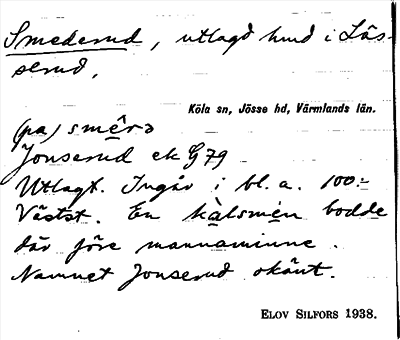 Smederud, utlagd hmd i Läs-
serud.
Köla sn, Jösse hd, Värmlands län.
(pa) smêrə
Jonserud ek G 79
Utlagt. Ingår i bl. a. 100:-
Västst. En kàlsmén bodde
där före mannaminne.
Namnet Jonserud okänt.
ELOV SILFORS 1938.